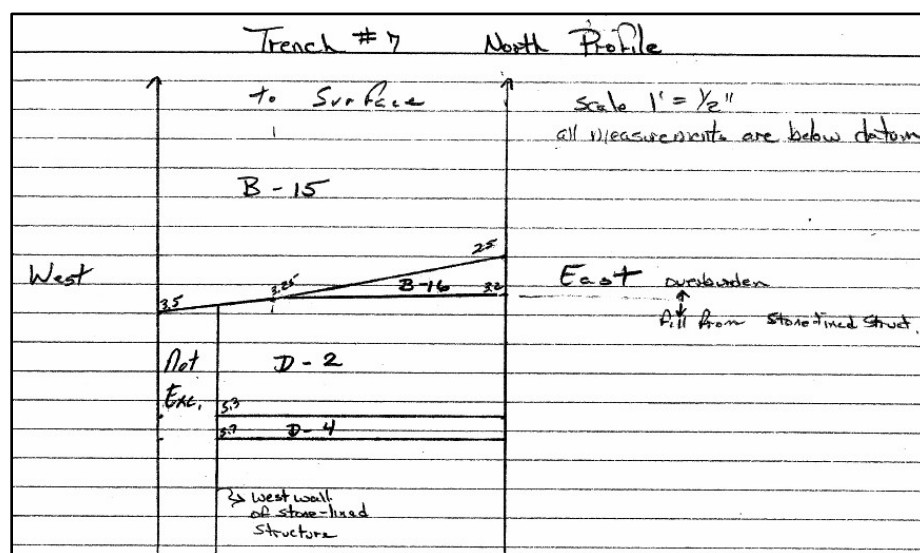 Trench #7 North Profile
to Surface
Scale 1' = 1/2"
all measurements are below datum
B-15
25
West
3.25
B-16
3.2
East overburden
3.5
fill from stone-lined struct.
Not
Exc.
D-2
5.3
5.7
D-4
West wall
of stone-lined
structure